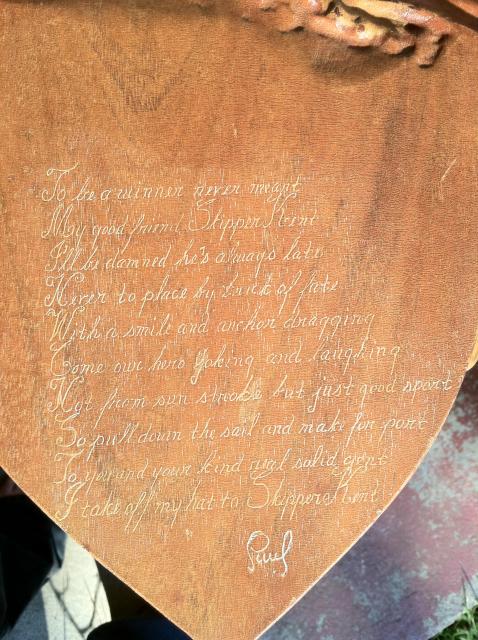 To be a winner never meant
My good friend Skipper Kent
I'll be damned he's always late
Never to place by trick of fate
With a smile and anchor dragging
Come our hero yoking and laughing
Not from sun stroke but just good sport
So pull down the sail and make for port
To you and your kind real solid gent
I take off my hat to Skipper Kent
Paul